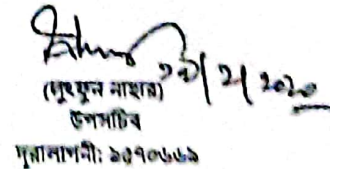 ২/২০২০
(লুৎফুন নাহার)
উপসচিব
দূরালাপনী: ৯৫৭০৬৬৯